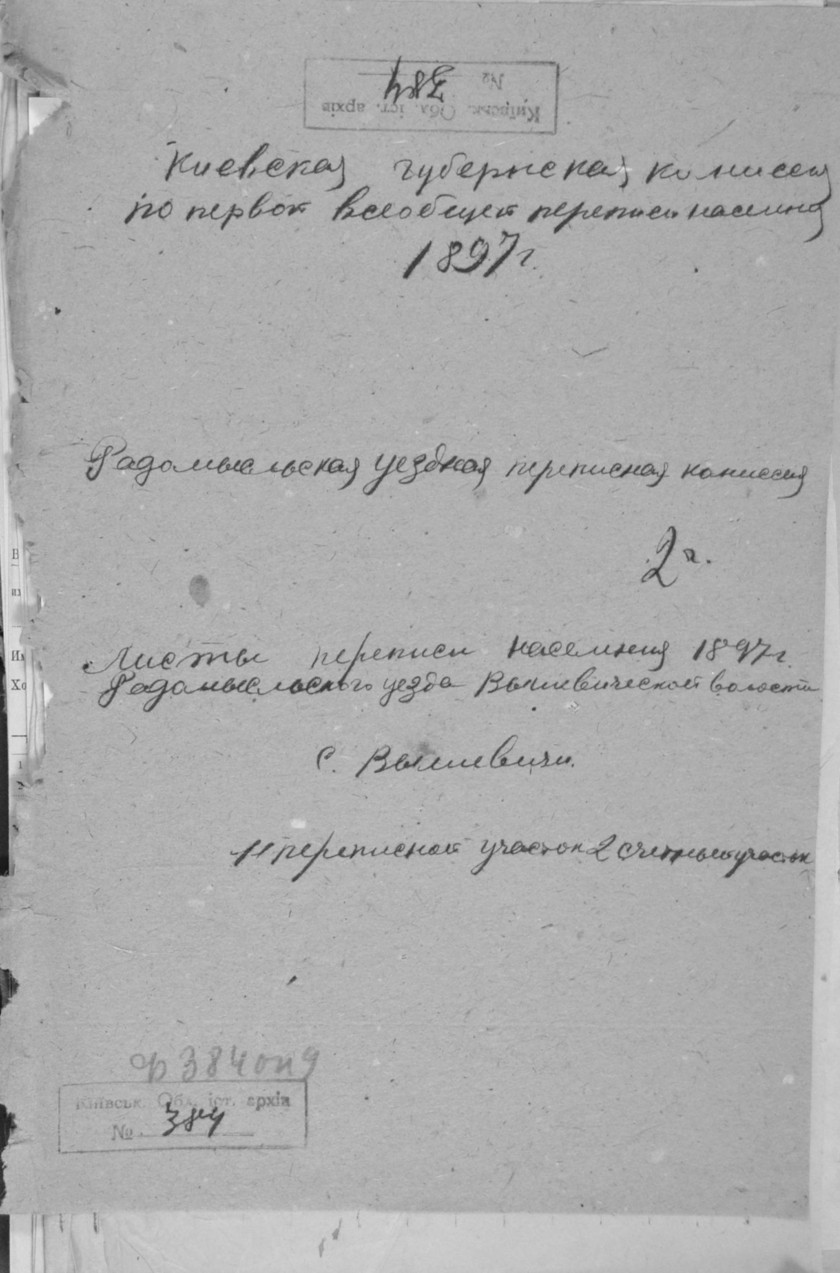 Київськ. Обл. іст. архів
№ 384
Киевская губернская комиссия
по первой всеобщей переписи населения
1897 г.
Радомысльская уездная переписная комиссия
2 г.
Листы переписи населения 1897 г.
Радомысльского уезда Вышевической волости
с. Вышевичи.
11 переписной участок 2 счетный участок
ф 384 оп 9
Київськ. Обл. іст. архів
№ 384